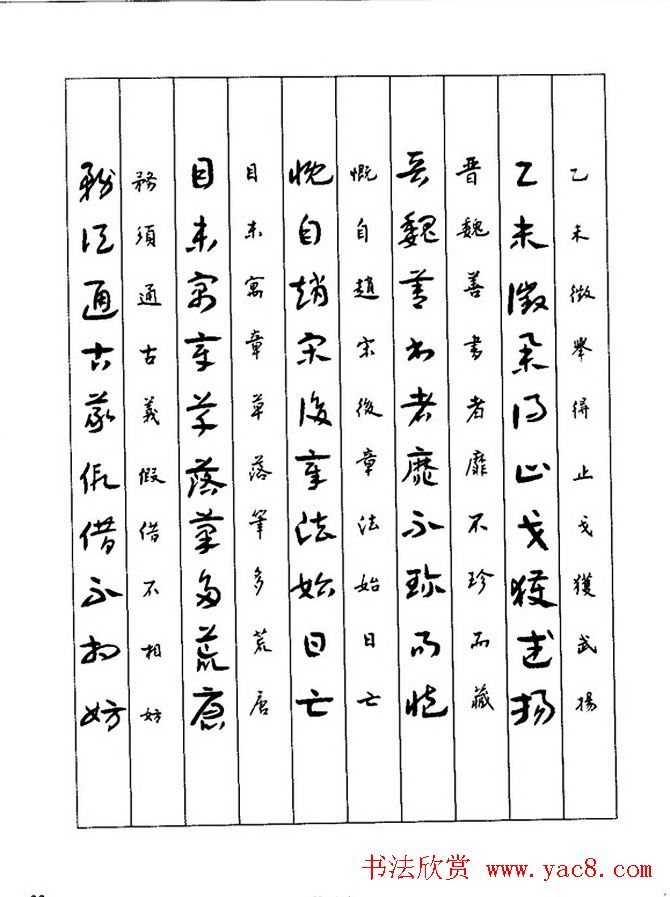 乙未徵舉得止戈獲武揚
乙未徵舉得止戈獲武揚
晉魏善書者靡不珍而藏
晉魏善書者靡不珍而藏
慨自趙宋後章法始日亡
慨自趙宋後章法始日亡
目未寓章草落筆多荒唐
目未寓章草落筆多荒唐
務須通古義假借不相妨
務須通古義假借不相妨
书法欣赏 www.yac8.com